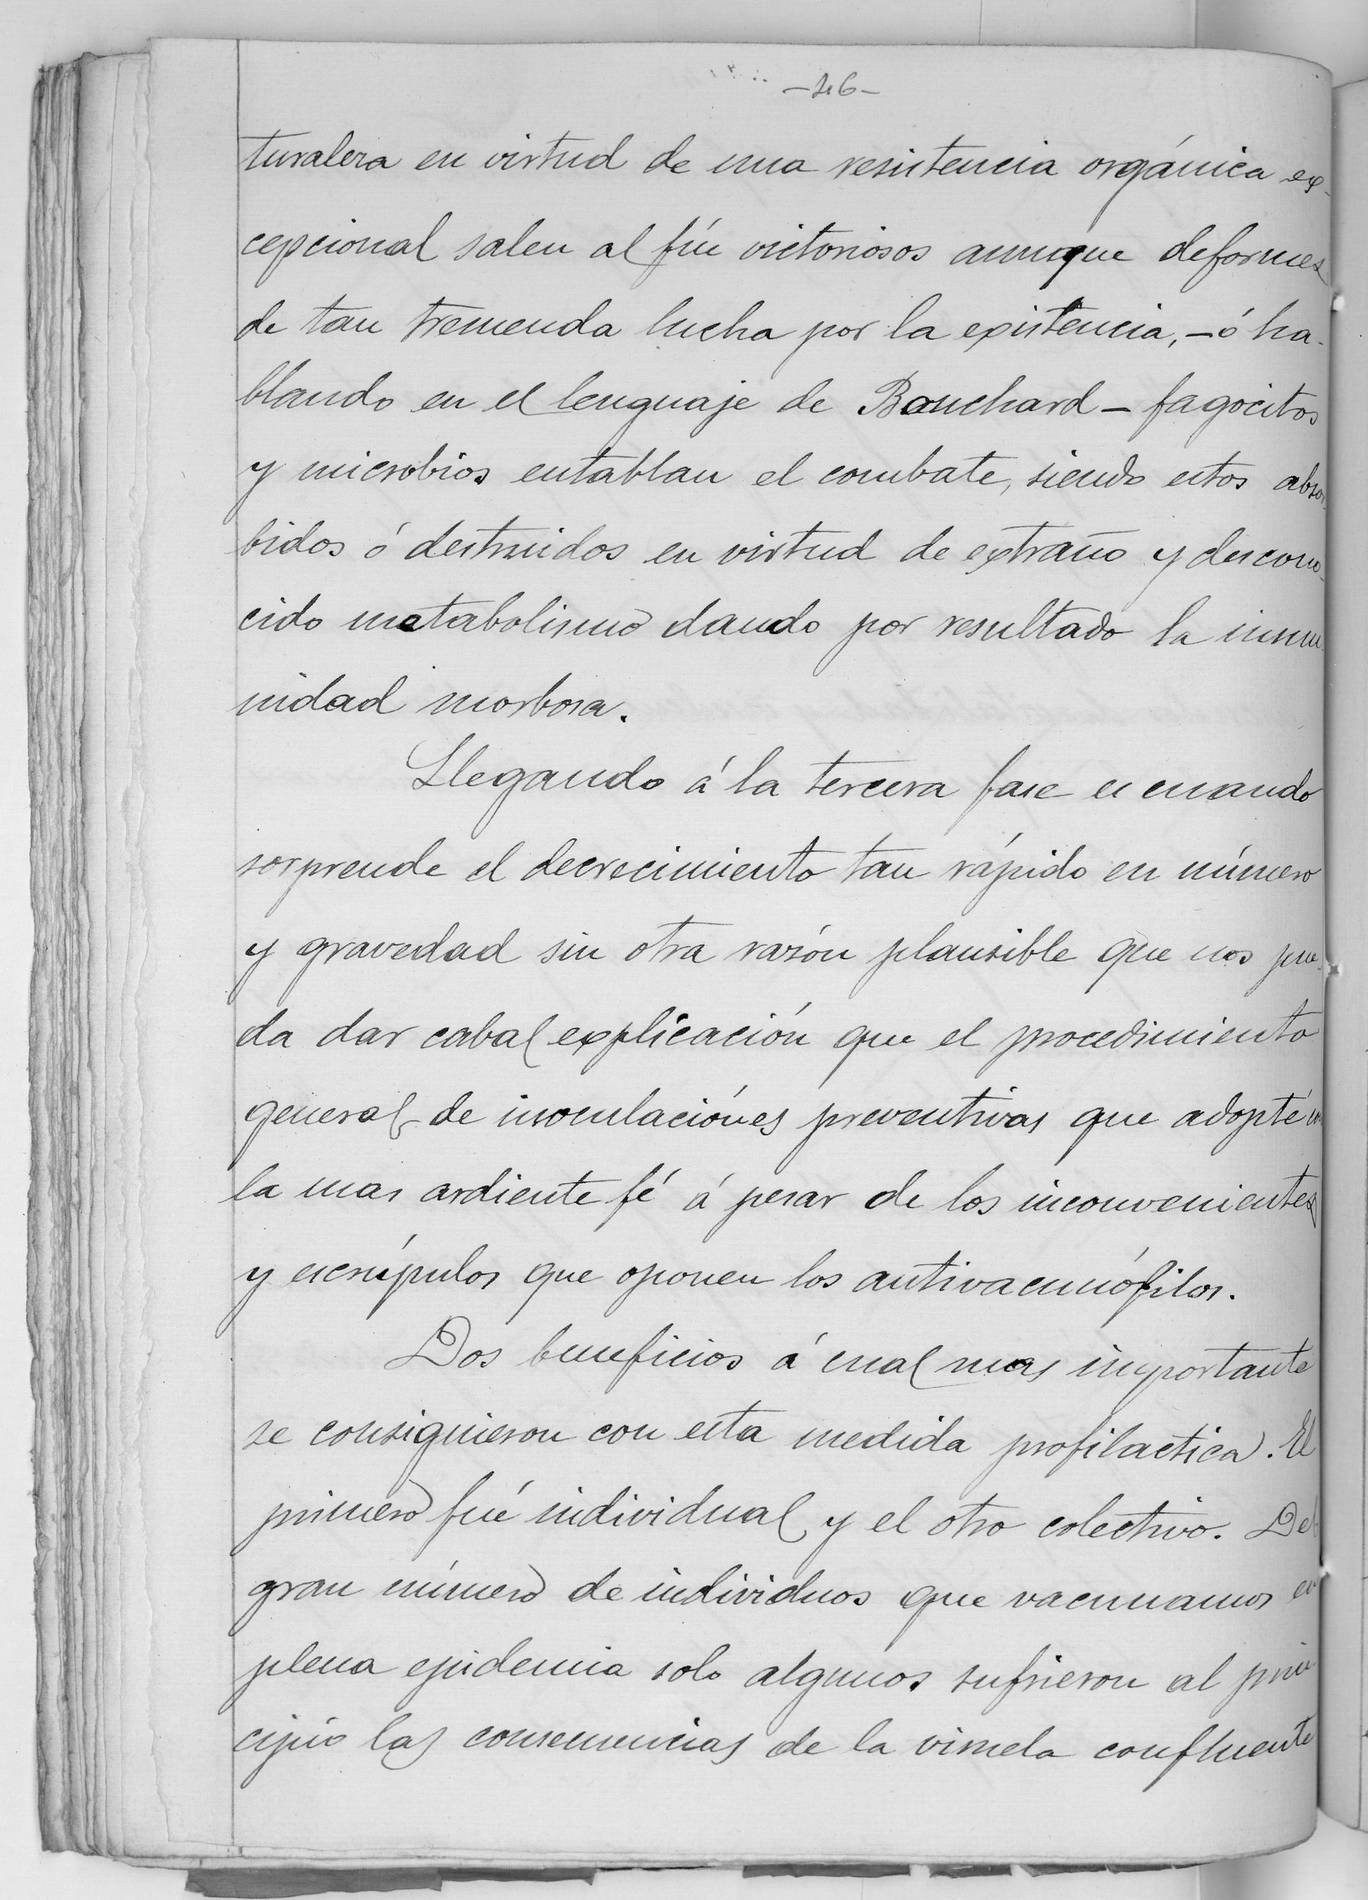 -46-
turaleza en virtud de una resistencia orgánica ex-
cepcional salen al fín victoriosos aunque deformes
de tan tremenda lucha por la existencia, - ó ha-
blando en el lenguaje de Bouchard - fagocitos
y microbios entablan el combate, siendo estos absor
bidos ó destruidos en virtud de extraño y descono-
cido metabolismo dando por resultado la inmu
nidad morbosa.
Llegando á la tercera fase es cuando
sorprende el decrecimiento tan rápido en número
y gravedad sin otra razón plausible que nos pue-
da dar cabal explicación que el procedimiento
general de inoculaciónes preventivas que adopté con
la mas ardiente fé á pesar de los inconvenientes
y escrúpulos que oponen los antivacunófilos.
Dos beneficios á cual mas importante
se consiguieron con esta medida profilactica. El
primero fué individual y el otro colectivo. Del
gran número de individuos que vacunamos en
plena epidemia solo algunos sufrieron al prin
cipio las consecuencias de la viruela confluente